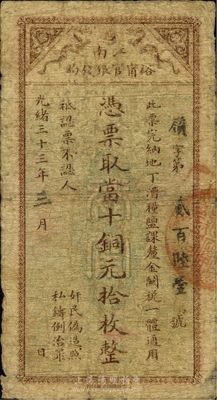 江南
裕甯官銀錢局
此票完納地丁漕糧鹽課釐金關稅一體通用
字第
貳百陸壹
號
憑票取當十銅元拾枚整
祇認票不認人
光緒三十三年三月
日
奸民偽造照
私鑄例治罪